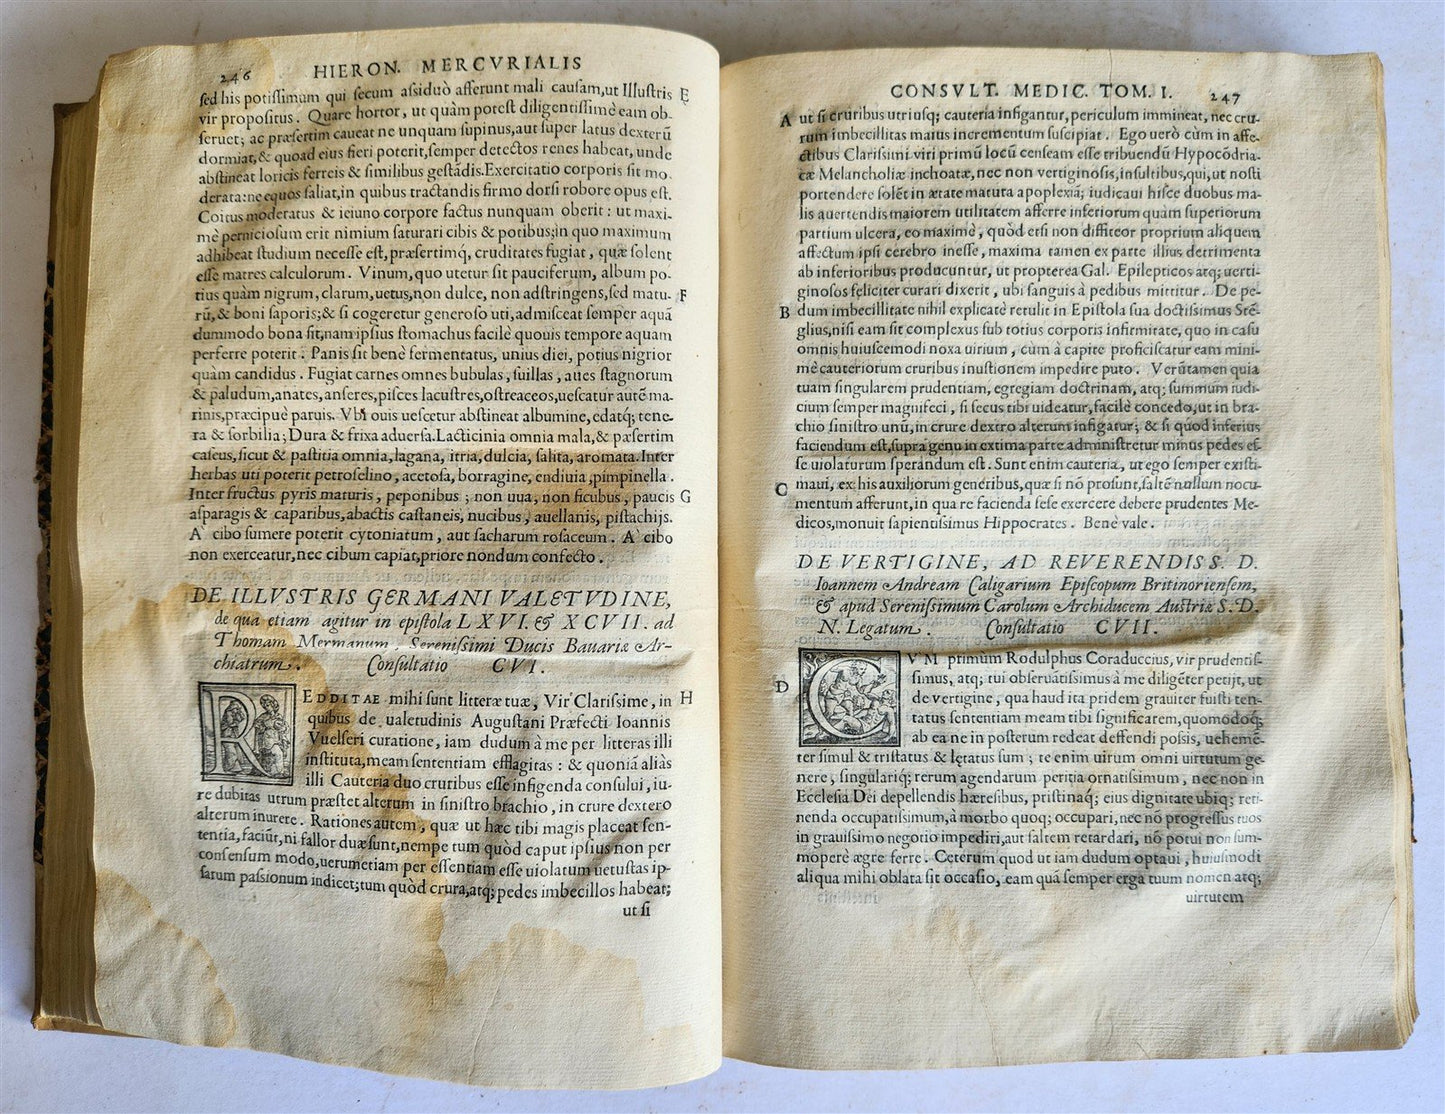 246 HIERON. MERCVRIALIS
sed his potissimum qui secum assiduò afferunt mali causam, ut Illustris E
vir propositus. Quare hortor, ut quàm potest diligentissimè eam ob-
seruet; ac præsertim caueat ne unquam supinus, aut super latus dexterũ
dormiat, & quoad eius fieri poterit, semper detectos renes habeat, unde
abstineat loricis ferreis & similibus gestãdis. Exercitatio corporis sit mo
derata: ne equos saliat, in quibus tractandis firmo dorsi robore opus est.
Coitus moderatus & ieiuno corpore factus nunquam oberit: ut maxi-
mè perniciosum erit nimium saturari cibis & potibus; in quo maximum
adhibeat studium necesse est, præsertimq́, cruditates fugiat, quæ solent
esse matres calculorum. Vinum, quo utetur sit pauciferum, album po-
tius quàm nigrum, clarum, uetus, non dulce, non adstringens, sed matu- F
rũ, & boni saporis; & si cogeretur generoso uti, admisceat semper aquã
dummodo bona sit, nam ipsius stomachus facilè quouis tempore aquam
perferre poterit. Panis sit benè fermentatus, unius diei, potius nigrior
quàm candidus. Fugiat carnes omnes bubulas, suillas, aues stagnorum
& paludum, anates, anseres, pisces lacustres, ostreaceos, uescatur autẽ ma-
rinis, præcipuè paruis. Vbi ouis uescetur abstineat albumine, edatq́; tene-
ra & sorbilia; Dura & frixa aduersa. Lacticinia omnia mala, & præsertim
caseus, sicut & pastitia omnia, lagana, itria, dulcia, salita, aromata. Inter
herbas uti poterit petroselino, acetosa, borragine, endiuia, pimpinella.
Inter fructus pyris maturis, peponibus; non uua, non ficubus, paucis G
asparagis & caparibus, abactis castaneis, nucibus, auellanis, pistachijs.
A' cibo sumere poterit cytoniatum, aut sacharum rosaceum. A' cibo
non exerceatur, nec cibum capiat, priore nondum confecto.
DE ILLVSTRIS GERMANI VALETVDINE,
de qua etiam agitur in epistola LXVI. & XCVII. ad
Thomam Mermanum, Serenissimi Ducis Bauariæ Ar-
chiatrum. Consultatio CVI.
REDDITAE mihi sunt litteræ tuæ, Vir Clarissime, in H
quibus de ualetudinis Augustani Præfecti Ioannis
Vuelseri curatione, iam dudum à me per litteras illi
instituta, meam sententiam efflagitas: & quoniã aliàs
illi Cauteria duo cruribus esse infigenda consului, iu-
re dubitas utrum præstet alterum in sinistro brachio, in crure dextero
alterum inurere. Rationes autem, quæ ut hæc tibi magis placeat sen-
tentia, faciũt, ni fallor duæ sunt, nempe tum quòd caput ipsius non per
consensum modo, uerumetiam per essentiam esse uiolatum uetustas ip-
sarum passionum indicet; tum quòd crura, atq; pedes imbecillos habeat;
ut si
CONSVLT. MEDIC. TOM. I. 247
A ut si cruribus utriusq; cauteria infigantur, periculum immineat, nec cru-
rum imbecillitas maius incrementum suscipiat. Ego uerò cùm in affe-
ctibus Clarissimi viri primũ locũ censeam esse tribuendũ Hypocõdria-
cæ Melancholiæ inchoatæ, nec non vertiginosis, insultibus, qui, ut nosti
portendere solẽt in ætate matura apoplexiã; iudicaui hisce duobus ma-
lis auertendis maiorem utilitatem afferre inferiorum quàm superiorum
partium ulcera, eo maximè, quòd etsi non diffiteor proprium aliquem
affectum ipsi cerebro inesse, maxima tamen ex parte illius detrimenta
ab inferioribus producuntur, ut propterea Gal. Epilepticos atq; uerti-
ginosos feliciter curari dixerit, ubi sanguis à pedibus mittitur. De pe-
B dum imbecillitate nihil explicatè retulit in Epistola sua doctissimus Stẽ
glius, nisi eam sit complexus sub totius corporis infirmitate, quo in casu
omnis huiuscemodi noxa uirium, cùm à capite proficiscatur eam mini-
mè cauteriorum cruribus inustionem impedire puto. Verũtamen quia
tuam singularem prudentiam, egregiam doctrinam, atq; summum iudi-
cium semper magnifeci, si secus tibi uideatur, facilè concedo, ut in bra-
chio sinistro unũ, in crure dextro alterum infigatur; & si quod inferius
faciendum est, supra genu in extima parte administretur minus pedes es-
se uiolaturum sperandum est. Sunt enim cauteria, ut ego semper existi-
C maui, ex his auxiliorum generibus, quæ si nõ prosunt, saltẽ nullum nocu-
mentum afferunt, in qua re facienda sese exercere debere prudentes Me-
dicos, monuit sapientissimus Hippocrates. Benè vale.
DE VERTIGINE, AD REVERENDISS. D.
Ioannem Andream Caligarium Episcopum Britinoriensem,
& apud Serenissimum Carolum Archiducem Austriæ S. D.
N. Legatum. Consultatio CVII.
CVM primum Rodulphus Coraduccius, vir prudentis-
D simus, atq; tui obseruatissimus à me diligẽter petijt, ut
de vertigine, qua haud ita pridem grauiter fuisti ten-
tatus sententiam meam tibi significarem, quomodoq́;
ab ea ne in posterum redeat deffendi possis, uehemẽ-
ter simul & tristatus & lętatus sum; te enim uirum omni uirtutum ge-
nere, singulariq; rerum agendarum peritia ornatissimum, nec non in
Ecclesia Dei depellendis hæresibus, pristinaq́; eius dignitate ubiq; reti-
nenda occupatissimum, à morbo quoq; occupari, nec nõ progressus tuos
in grauissimo negotio impediri, aut saltem retardari, nõ potui non sum-
mopere ægre ferre. Ceterum quod ut iam dudum optaui, huiusmodi
aliqua mihi oblata sit occasio, eam quã semper erga tuum nomen atq;
uirtutem